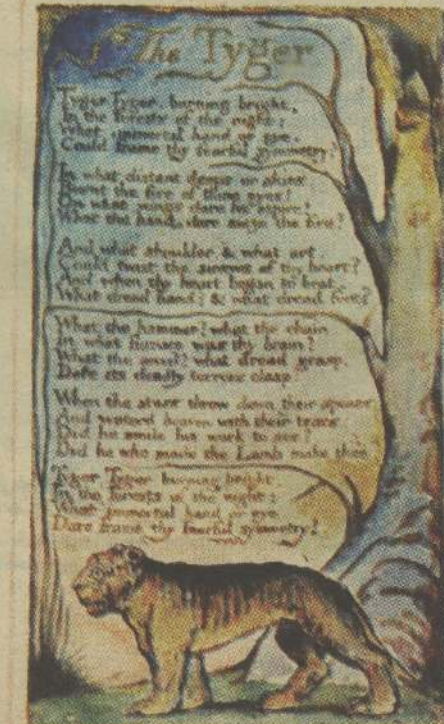 The Tyger
Tyger Tyger, burning bright,
In the forests of the night;
What immortal hand or eye,
Could frame thy fearful symmetry?
In what distant deeps or skies
Burnt the fire of thine eyes?
On what wings dare he aspire?
What the hand, dare sieze the fire?
And what shoulder, & what art,
Could twist the sinews of thy heart?
And when thy heart began to beat,
What dread hand? & what dread feet?
What the hammer? what the chain
In what furnace was thy brain?
What the anvil? what dread grasp,
Dare its deadly terrors clasp
When the stars threw down their spears
And water'd heaven with their tears
Did he smile his work to see?
Did he who made the Lamb make thee
Tyger Tyger burning bright
In the forests of the night:
What immortal hand or eye
Dare frame thy fearful symmetry?